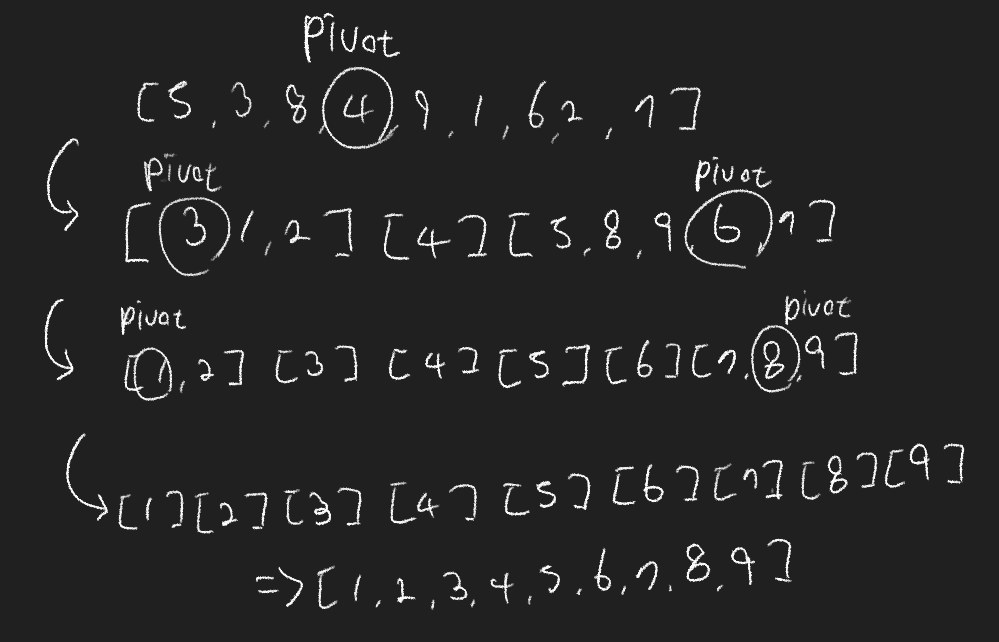 Pivot
[5, 3, 8, 4, 9, 1, 6, 2, 7]
pivot pivot
[3 1, 2] [4] [5, 8, 9 6 7]
pivot pivot
[1, 2] [3] [4] [5] [6] [7, 8, 9]
[1] [2] [3] [4] [5] [6] [7] [8] [9]
=> [1, 2, 3, 4, 5, 6, 7, 8, 9]